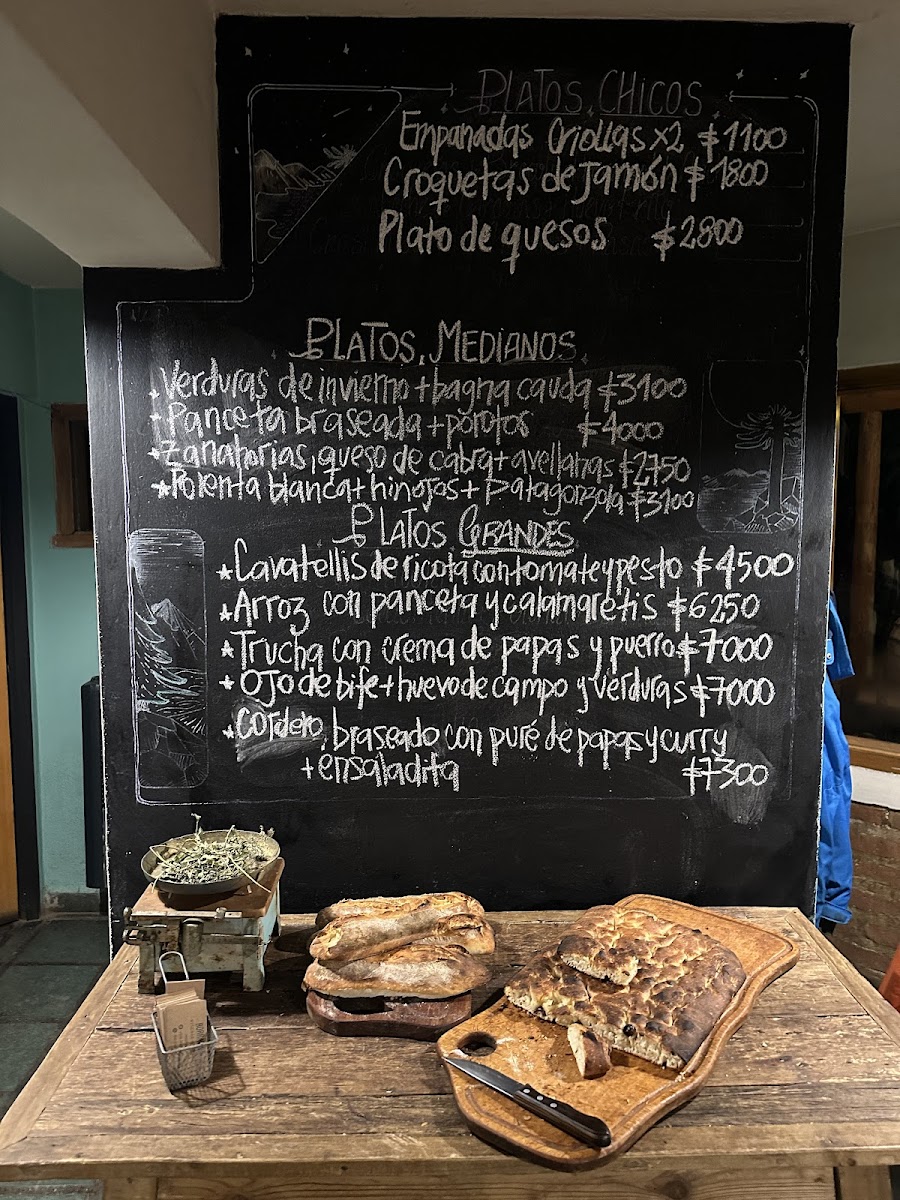 PLATOS CHICOS
Empanadas Criollas x2 $1100
Croquetas de jamón $1800
Plato de quesos $2800
PLATOS MEDIANOS
Verduras de invierno + bagna cauda $3100
Panceta braseada + porotos $4000
Zanahorias, queso de cabra + avellanas $2750
Polenta blanca + hinojos + Patagonzola $3100
PLATOS GRANDES
Cavatellis de ricota con tomate y pesto $4500
Arroz con panceta y calamaretis $6250
Trucha con crema de papas y puerro $7000
Ojo de bife + huevo de campo y verduras $7000
Cordero, braseado con puré de papas y curry
+ ensaladita $7300